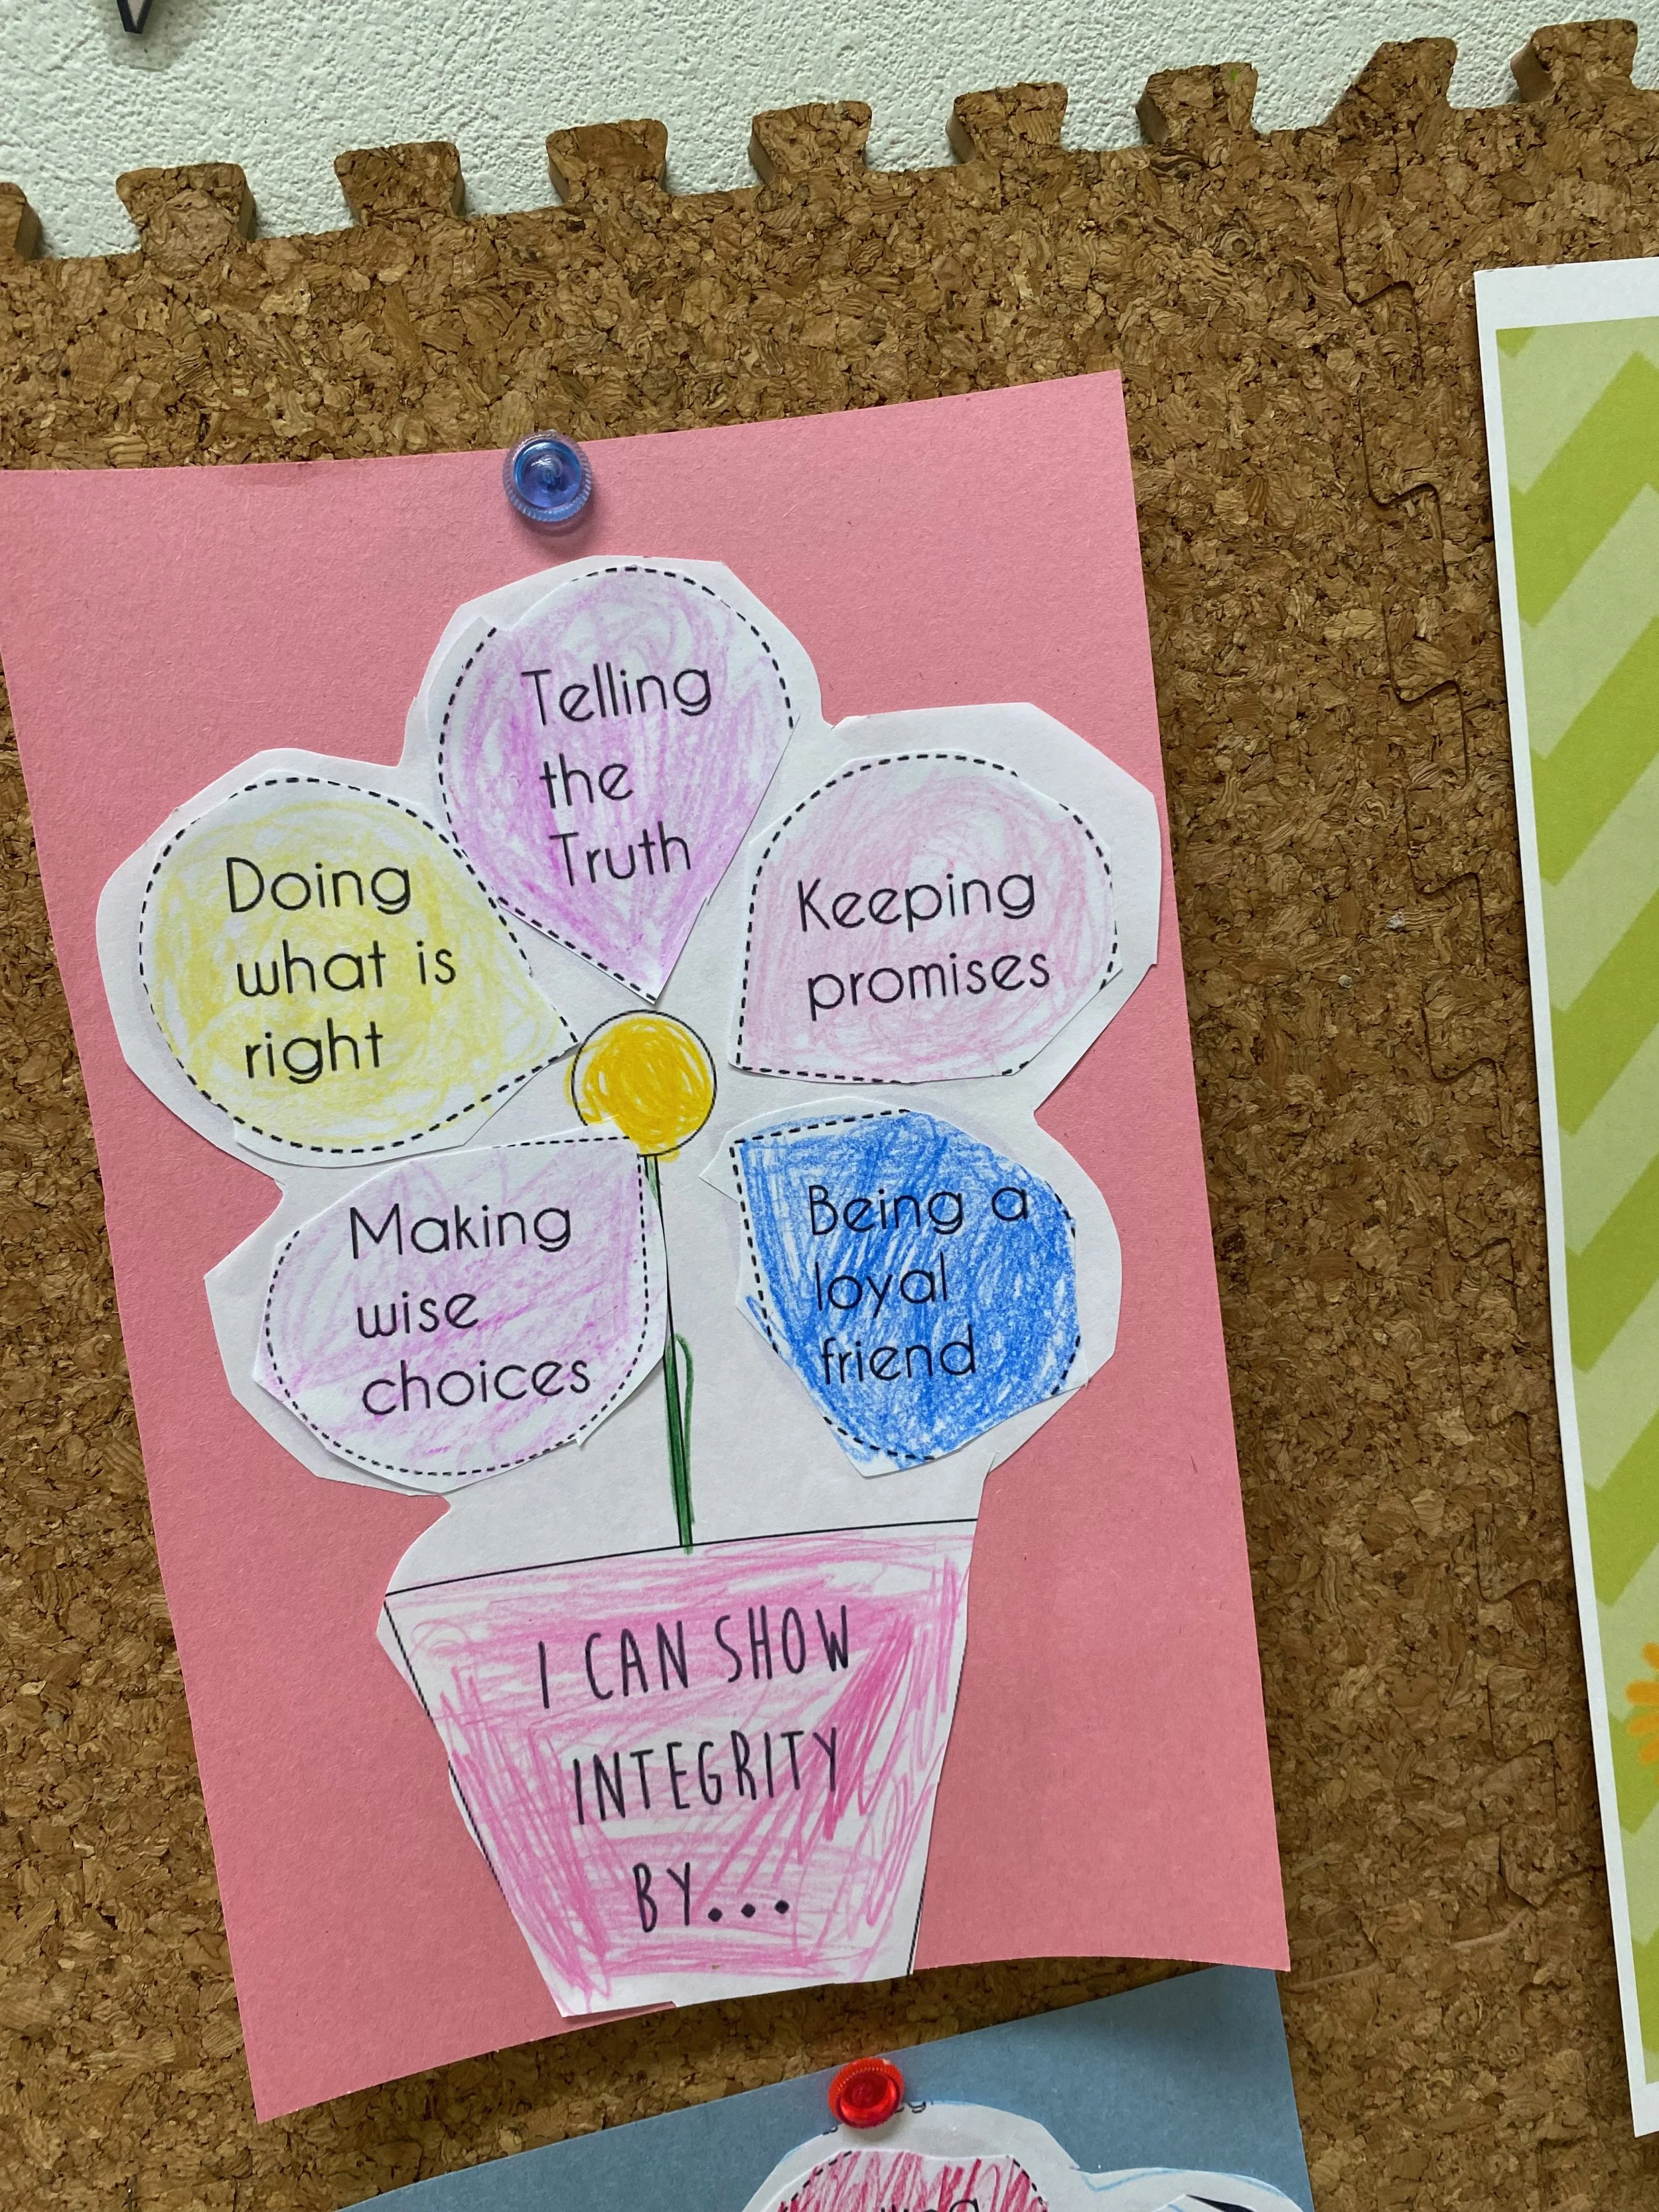 Telling
the
Truth
Doing
what is
right
Keeping
promises
Making
wise
choices
Being a
loyal
friend
I CAN SHOW
INTEGRITY
BY...